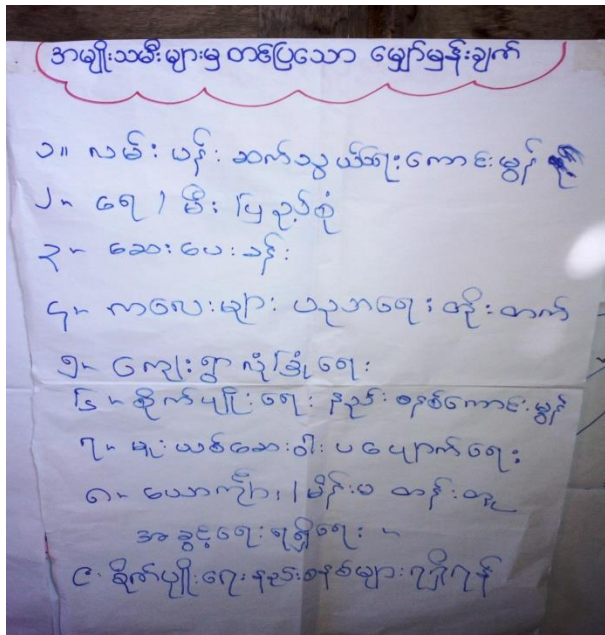 အမျိုးသမီးများမှ တင်ပြသော မျှော်မှန်းချက်
၁။ လမ်း ပန်း ဆက်သွယ်ရေးကောင်းမွန်
၂။ ရေ / မီး ပြည့်စုံ
၃။ ဆေးပေးခန်း
၄။ ကလေးများ ပညာရေး တိုးတက်
၅။ ကျေးရွာ လုံခြုံရေး
၆။ စိုက်ပျိုးရေး နည်းစနစ်ကောင်းမွန်
၇။ မူးယစ်ဆေးဝါး ပပျောက်ရေး
၈။ ယောကျ်ား / မိန်းမ တန်းတူ
အခွင့်ရေးရရှိရေး။
၉. စိုက်ပျိုးရေးနည်းစနစ်များရရှိရန်